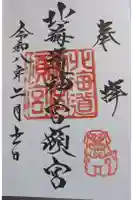 奉拝
北海道神宮頓宮
北海道
頓宮
令和八年二月十一日